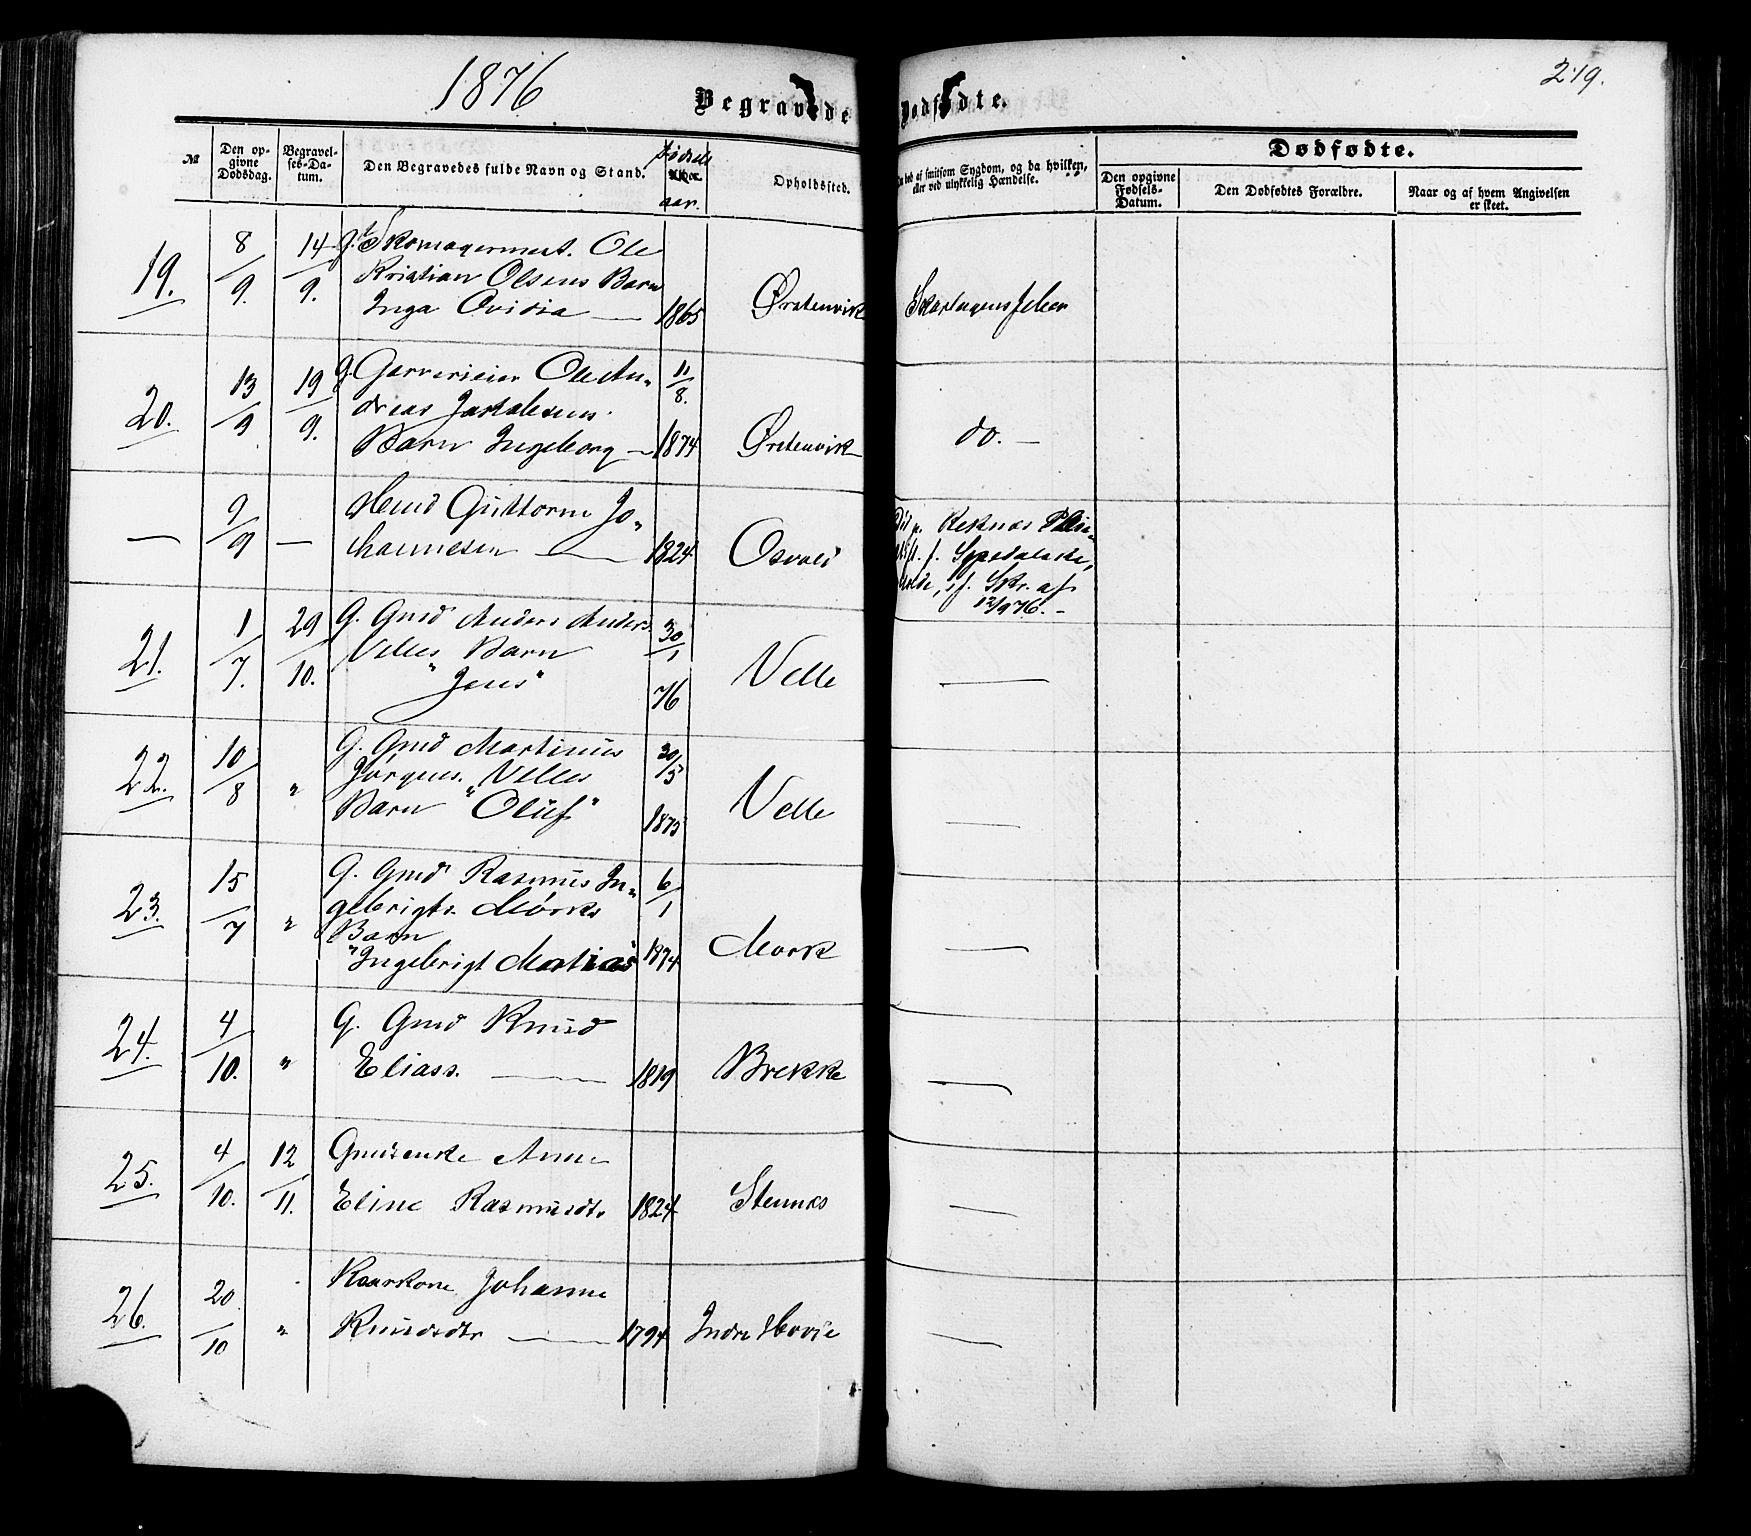 1876
Begravede
Dødfødte.
219.
№
Den op-
givne
Dødsdag.
Begravel-
ses-Da-
tum.
Den Begravedes fulde Navn og Stand.
Fødsels
Alder.
aar.
Opholdssted.
død af smitsom Sygdom, og da hvilken,
eller ved ulykkelig Hændelse.
Dødfødte.
Den opgivne
Fødsels-
Datum.
Den Dødfødtes Forældre.
Naar og af hvem Angivelsen
er skeet.
19. 8/9. 14/9. g. Skomagermest. Ole
Kristian Olsens Barn
Inga Ovidia — 1865 Ørstenvik Skarlagensfeber
20. 13/9 19/9. g. Garverieier Ole An-
dreas Barn Ingeborg — 11/8. 1874 Ørstenvik do. —
— 9/9 — Guttorm Jo-
hannesen — 1824 Osvold
Reknes Pleie-
f. Spedalske,
Molde, if. Skr. af
12/9 76. -
21. 1/7. 29/10. G. Gmd Anders Anders.
Velles Barn
"Jens" 30/1 76 Velle —
22. 10/8 " G. Gmd Martinus
Jørgens. Velles
Barn "Oluf" 30/5 1875 Velle —
23. 15/7 " G. Gmd Rasmus In-
gebrigts. Mørks
Barn
"Ingebrigt Martias" 6/1 1874 Mork —
24. 4/10. " G. Gmd Knud
Eliass. — 1819 Brekke —
25. 4/10. 12/11. Gmdenke Anne
Eline Rasmusdtr 1824 Stennes —
26. 20/10 " Kaarkone Johanne
Knudsdtr — 1794 Indre Hovde —